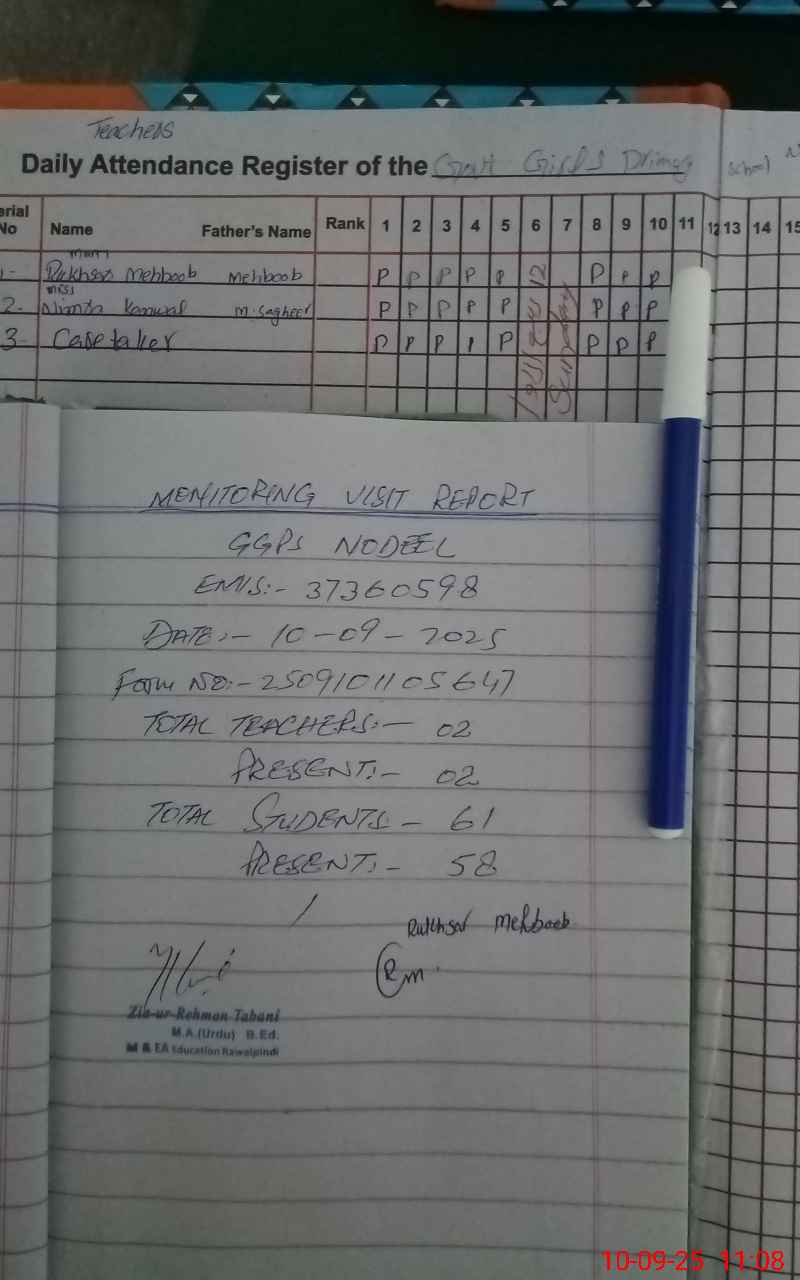 Teachers
Daily Attendance Register of the Govt Girls Primary School
Serial No Name Father's Name Rank 1 2 3 4 5 6 7 8 9 10 11 12 13 14 15
1- Rukhsar Mehboob Mehboob P P P P P 12 P P P
Miss
2- Nimra Kanwal M. Sagheer P P P P P P P P
3- Caretaker P P P P P Sunday P P P
MONITORING VISIT REPORT
GGPS NODEEL
EMIS:- 37360598
DATE:- 10-09-2025
Form NO:- 2509101105647
TOTAL TEACHERS:- 02
PRESENT:- 02
TOTAL STUDENTS - 61
PRESENT:- 58
Rukhsar Mehboob
Rm.
Zia-ur-Rehman Tabani
M.A.(Urdu) B.Ed.
M & EA Education Rawalpindi
10-09-25 11:08